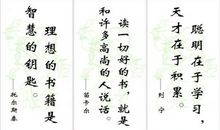 聪明在于学习，
天才在于积累。
——列宁
读一切好的书，就是
和许多高尚的人说话。
——笛卡尔
理想的书籍是
智慧的钥匙。
——托尔斯泰